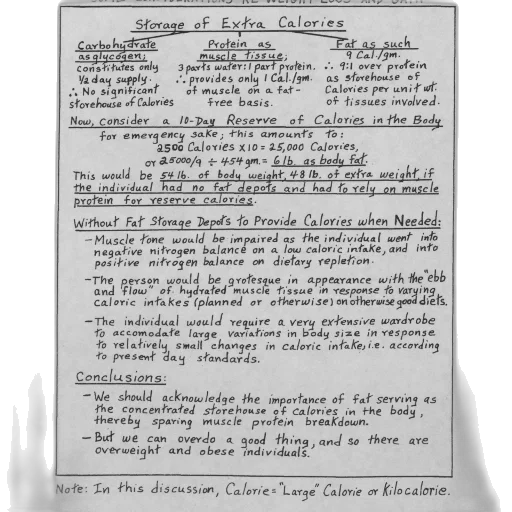 Storage of Extra Calories
Carbohydrate
as glycogen;
constitutes only
½ day supply.
∴ No significant
storehouse of Calories
Protein as
muscle tissue;
3 parts water:1 part protein.
∴ provides only 1 Cal./gm.
of muscle on a fat-
free basis.
Fat as such
9 Cal./gm.
∴ 9:1 over protein
as storehouse of
Calories per unit wt.
of tissues involved.
Now, consider a 10-Day Reserve of Calories in the Body
for emergency sake; this amounts to:
2500 Calories X10 = 25,000 Calories,
or 25000/9 ÷ 454 gm. = 6 lb. as body fat.
This would be 54 lb. of body weight, 48 lb. of extra weight, if
the individual had no fat depots and had to rely on muscle
protein for reserve calories.
Without Fat Storage Depots to Provide Calories when Needed:
— Muscle tone would be impaired as the individual went into
negative nitrogen balance on a low caloric intake, and into
positive nitrogen balance on dietary repletion.
— The person would be grotesque in appearance with the "ebb
and flow" of hydrated muscle tissue in response to varying
caloric intakes (planned or otherwise) on otherwise good diets.
— The individual would require a very extensive wardrobe
to accomodate large variations in body size in response
to relatively small changes in caloric intake, i.e. according
to present day standards.
Conclusions:
— We should acknowledge the importance of fat serving as
the concentrated storehouse of calories in the body,
thereby sparing muscle protein breakdown.
— But we can overdo a good thing, and so there are
overweight and obese individuals.
Note: In this discussion, Calorie = "Large" Calorie or Kilocalorie.